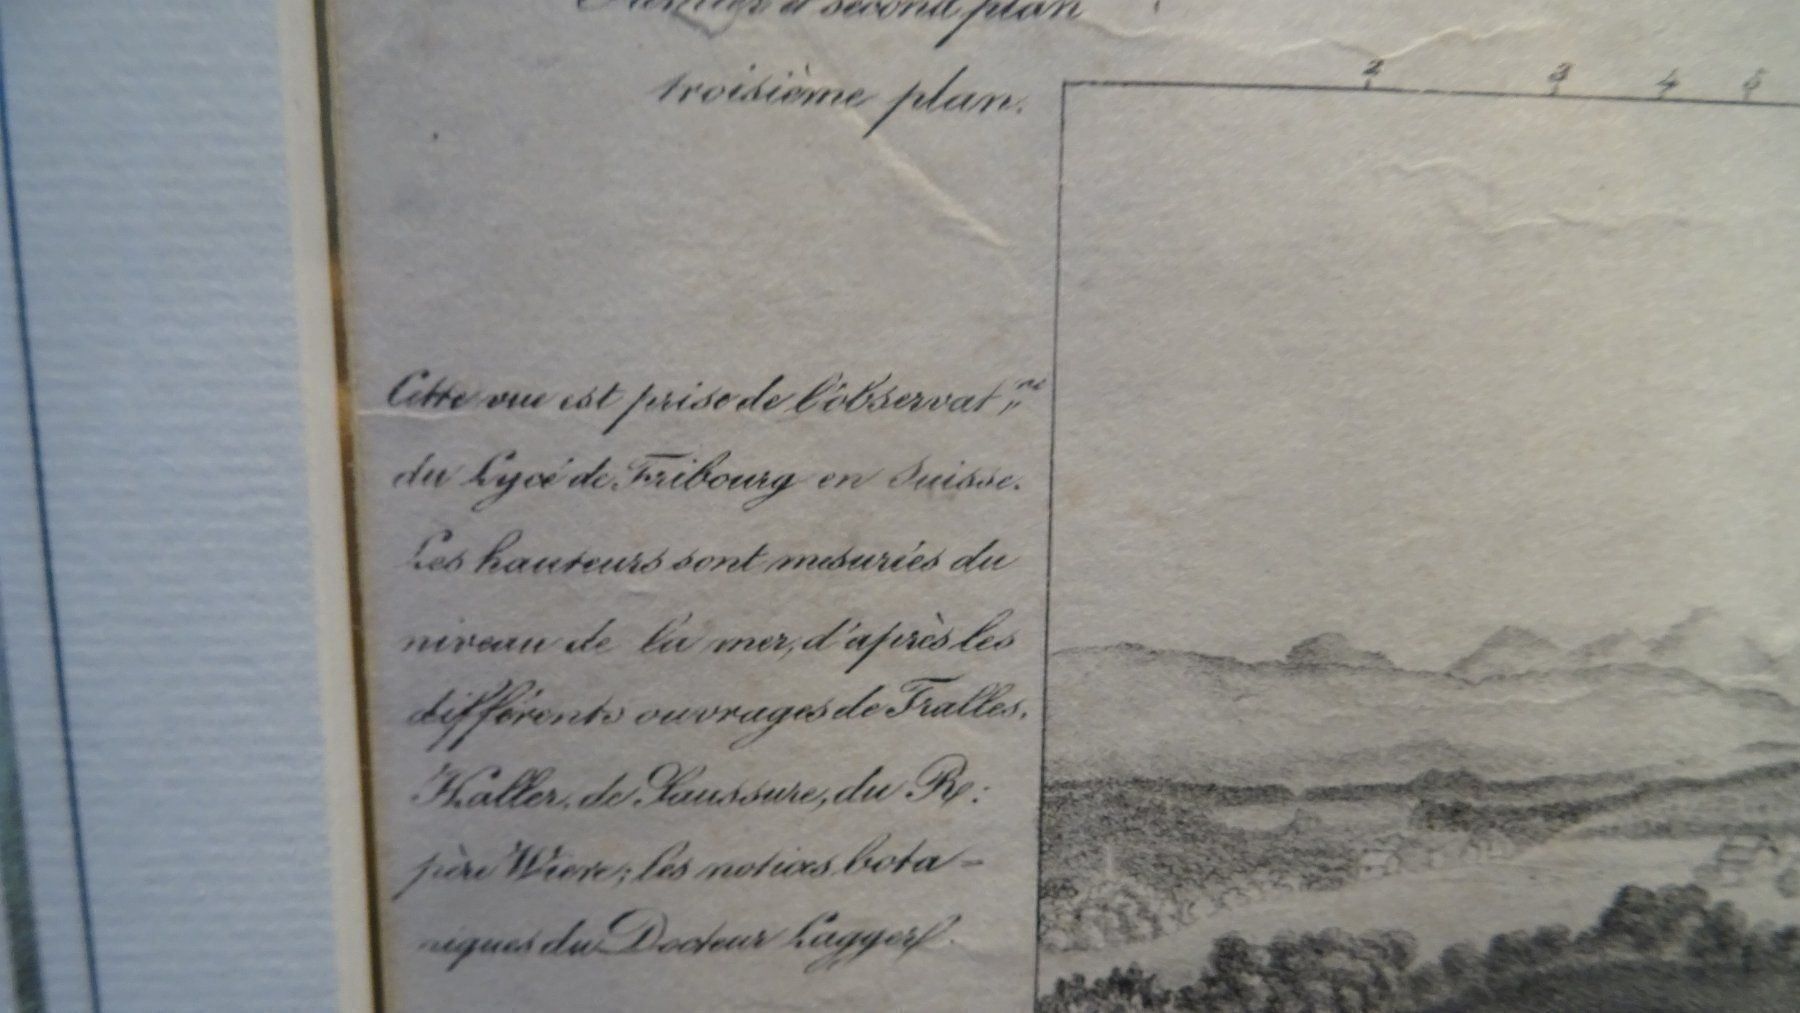 Premier et second plan
troisième plan.
2 3 4 5
Cette vue est prise de l'observat.re
du Lycé de Fribourg en Suisse.
Les hauteurs sont mesurées du
niveau de la mer, d'après les
différents ouvrages de Tralles,
Haller, de Saussure, du R:
père Wiere; les notices bota-
niques du Docteur Lagger.